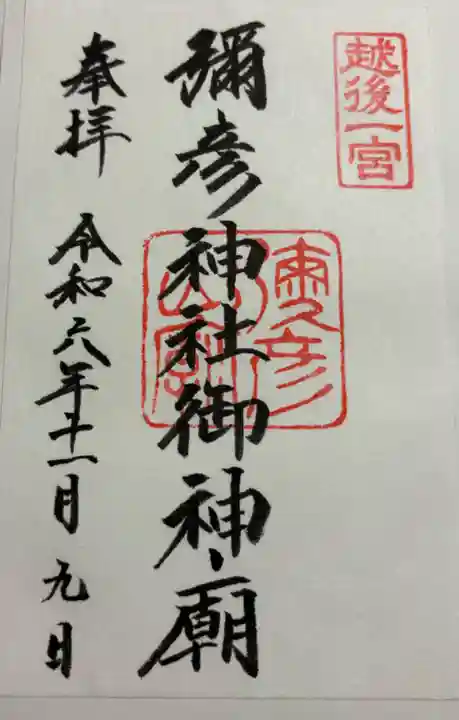 越後一宮
彌彦神社御神廟
奉拜
令和六年十一月九日